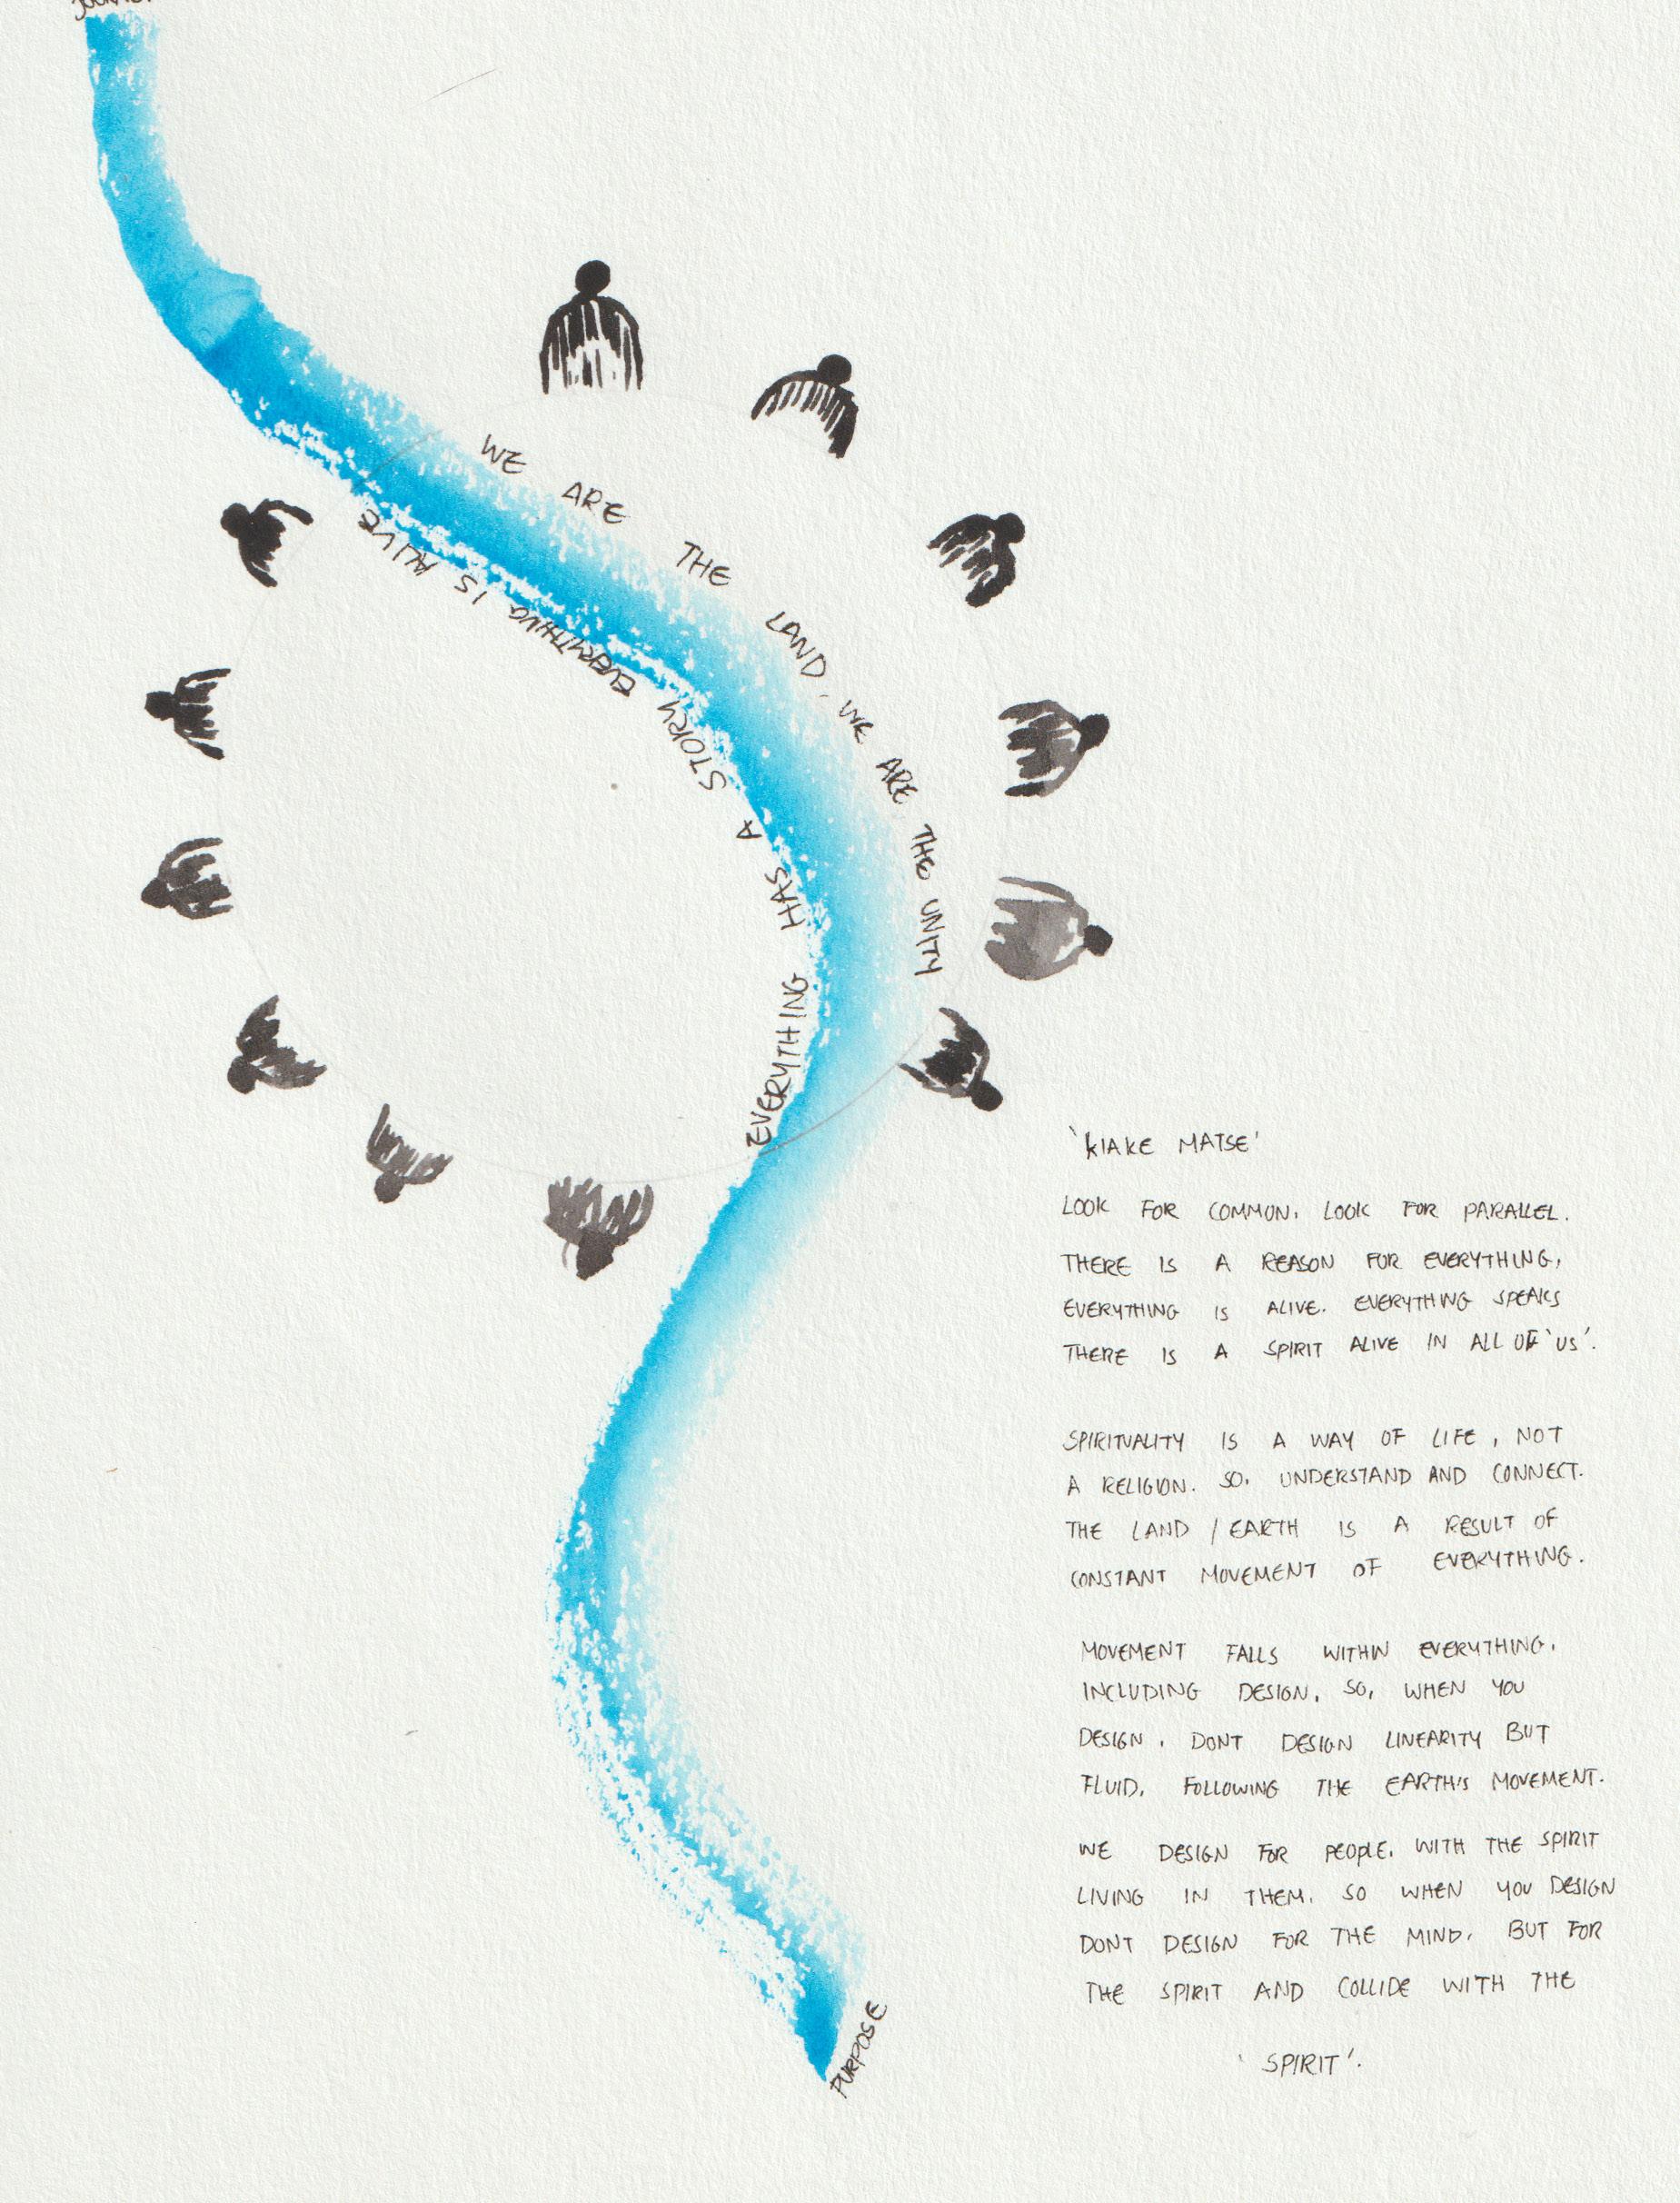 WE ARE THE LAND, WE ARE THE UNITY
EVERYTHING HAS A STORY EVERYTHING IS ALIVE
PURPOSE
'KIAKE MATSE'
LOOK FOR COMMON. LOOK FOR PARALLEL.
THERE IS A REASON FOR EVERYTHING,
EVERYTHING IS ALIVE. EVERYTHING SPEAKS
THERE IS A SPIRIT ALIVE IN ALL OF 'US'.
SPIRITUALITY IS A WAY OF LIFE, NOT
A RELIGION. SO, UNDERSTAND AND CONNECT.
THE LAND / EARTH IS A RESULT OF
CONSTANT MOVEMENT OF EVERYTHING.
MOVEMENT FALLS WITHIN EVERYTHING,
INCLUDING DESIGN. SO, WHEN YOU
DESIGN, DONT DESIGN LINEARITY BUT
FLUID, FOLLOWING THE EARTH'S MOVEMENT.
WE DESIGN FOR PEOPLE, WITH THE SPIRIT
LIVING IN THEM. SO WHEN YOU DESIGN
DONT DESIGN FOR THE MIND, BUT FOR
THE SPIRIT AND COLLIDE WITH THE
'SPIRIT'.